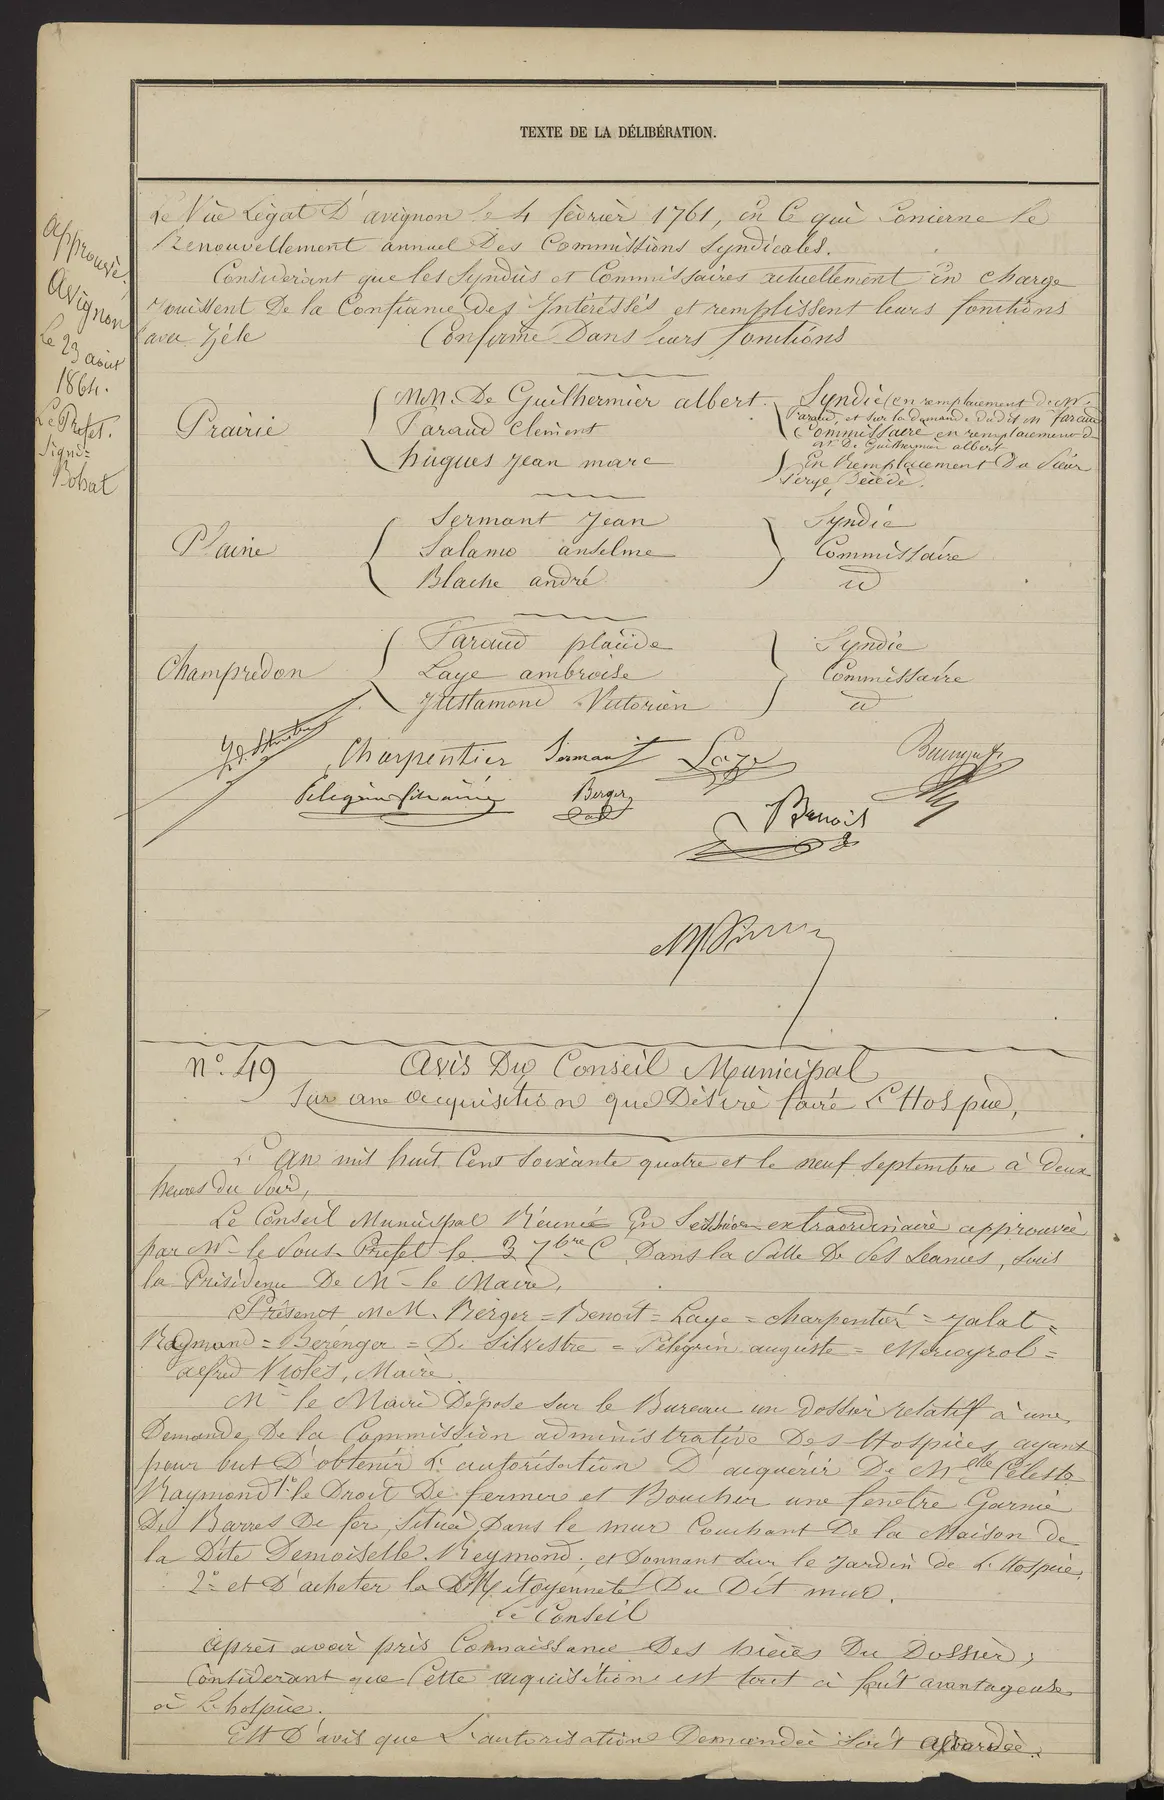 TEXTE DE LA DÉLIBÉRATION.
Le Vice Légat D'avignon le 4 février 1761, en Ce qui Concerne le
Renouvellement annuel Des Commissions Syndicales.
Considérant que les Syndics et Commissaires actuellement en charge
jouissent De la Confiance des Intéréssés et remplissent leurs fonctions
avec Zéle
Confirme Dans leurs fonctions
approuvé
Avignon
Le 23 août
1864.
Le Préfet.
Signé:
Bohat
Prairie
MM. De Guilhermier albert
Faraud Clement
hugues jean marc
Syndic (en remplacement de Mr
Faraud, et sur la demande dudit M faraud
Commissaire en remplacement de
Mr De Guilhermier albert
En Remplacement Du Sieur
Serge, Décédé.
Plaine
Sermant Jean
Salamo anselme
Blache andré
Syndic
Commissaire
id
Champredon
Faraud placide
Laye ambroise
Justamond Victorien
Syndic
Commissaire
id
Charpentier Sermant Laye
Pelegrin Berger
Benoit
n.º 49
Avis Du Conseil Municipal
Sur une acquisition que Désire faire L'Hospice,
L'An mil huit Cent Soixante quatre et le neuf Septembre à Deux
heures du Soir,
Le Conseil Municipal Réunie En Session extraordinaire approuvée
par Mr le Sous-Préfet le 3 7bre C. Dans la Salle De Ses Séances, sous
la Présidence De Mr le Maire,
Présents MM. Berger = Benoit = Laye = Charpentier = Jalat =
Raymond = Berénger = De Silvestre = Pelegrin auguste = Mercoyrol =
alfred Violès, Maire.
Mr le Maire Dépose Sur le Bureau un dossier relatif à une
Demande De la Commission administrative Des Hospices, ayant
pour but D'obtenir L'autorisation D'acquérir De Melle Céleste
Raymond 1º le Droit De fermer et Boucher une fenêtre Garnie
De Barres De fer, Située Dans le mur Couchant De la Maison de
la Dite Demoiselle Reymond; et Donnant Sur le jardin de L'Hospice.
2º et D'acheter la Mitoyenneté Du Dit mur.
Le Conseil
après avoir pris Connaissance Des pièces Du Dossier;
Considérant que Cette acquisition est tout à fait avantageuse
à L'hospice.
Est D'avis que L'autorisation Demandée Soit accordée.